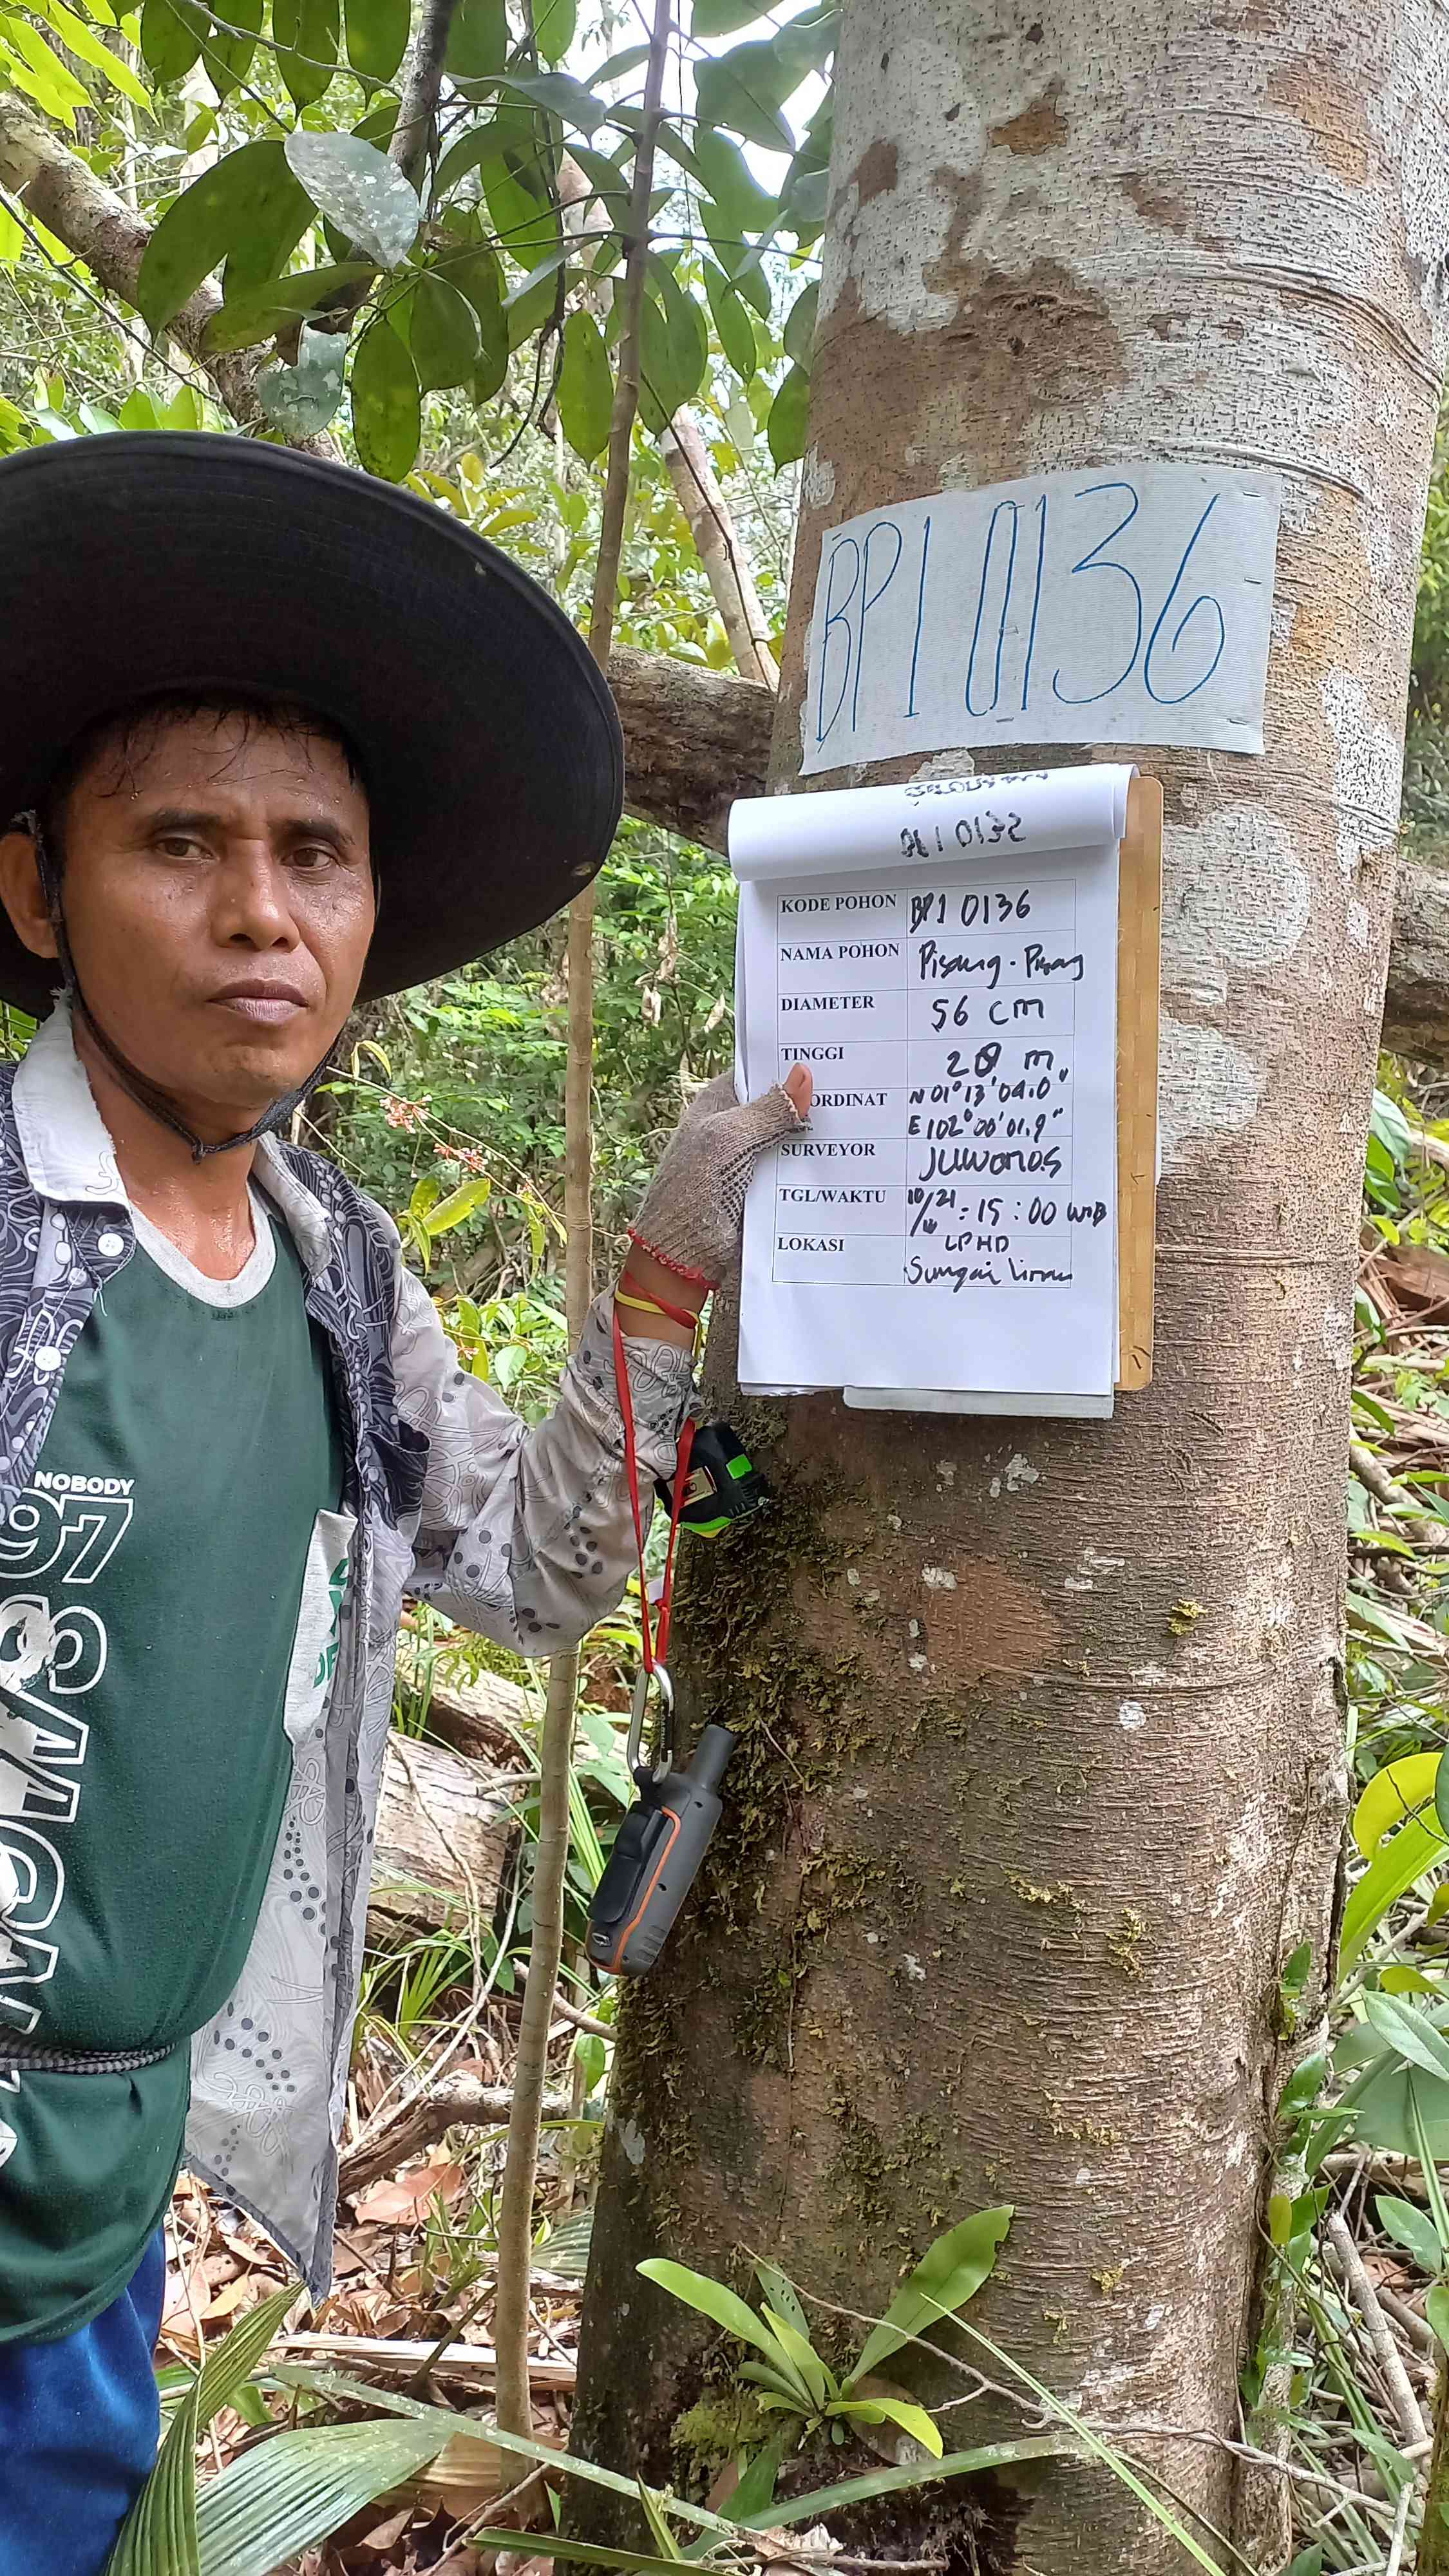 BP1 0136
0132
KODE POHON BP1 0136
NAMA POHON Pisang-Pisang
DIAMETER 56 cm
TINGGI 20 m
ORDINAT N 01° 13' 04.0"
E 102° 00' 01.9"
SURVEYOR JUWONO.S
TGL/WAKTU 10/21 : 15:00 WIB
LPHD
LOKASI Sungai
NOBODY
97